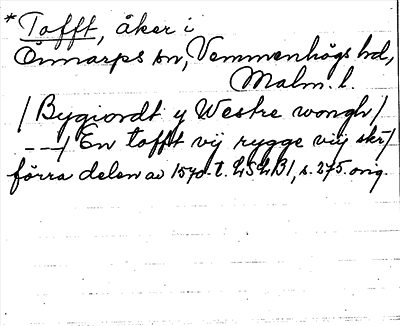 *Tofft, åker i
Önnarps sn, Vemmenhögs hd,
Malm. l.
/ Bygiordt y Westre wongh /
---/ En tofft vij rygge viij skr /
förra delen av 1570-t. LSLB1, s. 275. orig.